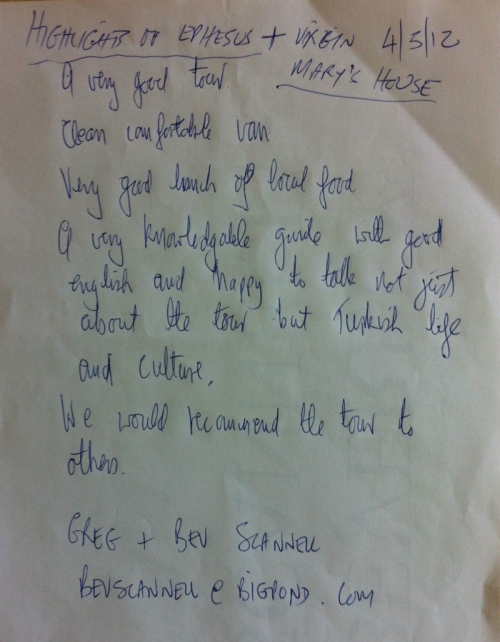 HIGHLIGHTS OF EPHESUS + VIRGIN 4/5/12
MARY'S HOUSE
A very good tour.
Clean comfortable van
Very good lunch of local food
A very knowledgable guide with good
english and happy to talk not just
about the tour but Turkish life
and culture.
We would recommend the tour to
others.
GREG + BEV SCANNELL
BEVSCANNELL@BIGPOND.COM